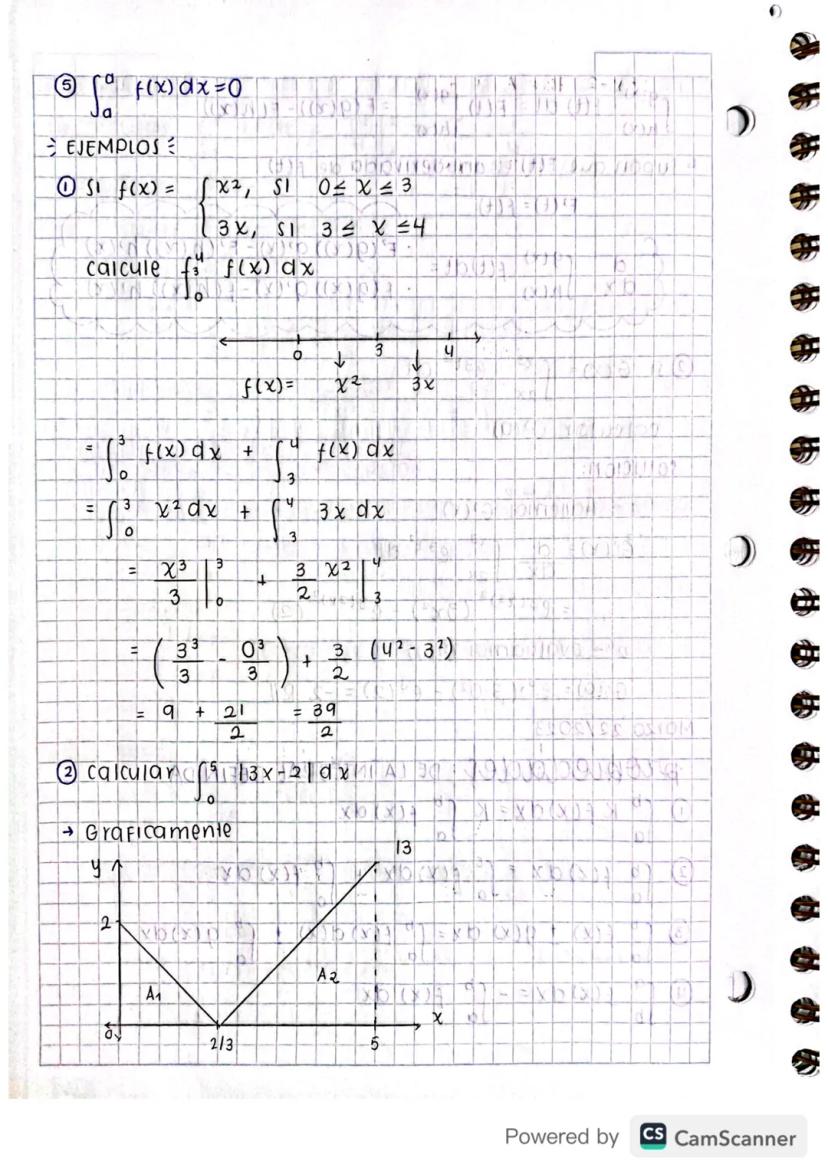 ⑤ ∫ₐᵃ f(x) dx = 0
EJEMPLOS
① SI f(x) = { x², SI 0 ≤ x ≤ 3
3x, SI 3 ≤ x ≤ 4
calcule ∫₀⁴ f(x) dx
0 3 4
f(x) = x² 3x
= ∫₀³ f(x) dx + ∫₃⁴ f(x) dx
= ∫₀³ x² dx + ∫₃⁴ 3x dx
= x³/3 |₀³ + 3/2 x² |₃⁴
= (3³/3 - 0³/3) + 3/2 (4² - 3²)
= 9 + 21/2 = 39/2
② calcular ∫₀⁵ |3x-2| dx
→ Graficamente
13
y
2
A1 A2
0 x
2/3 5
Powered by CS CamScanner